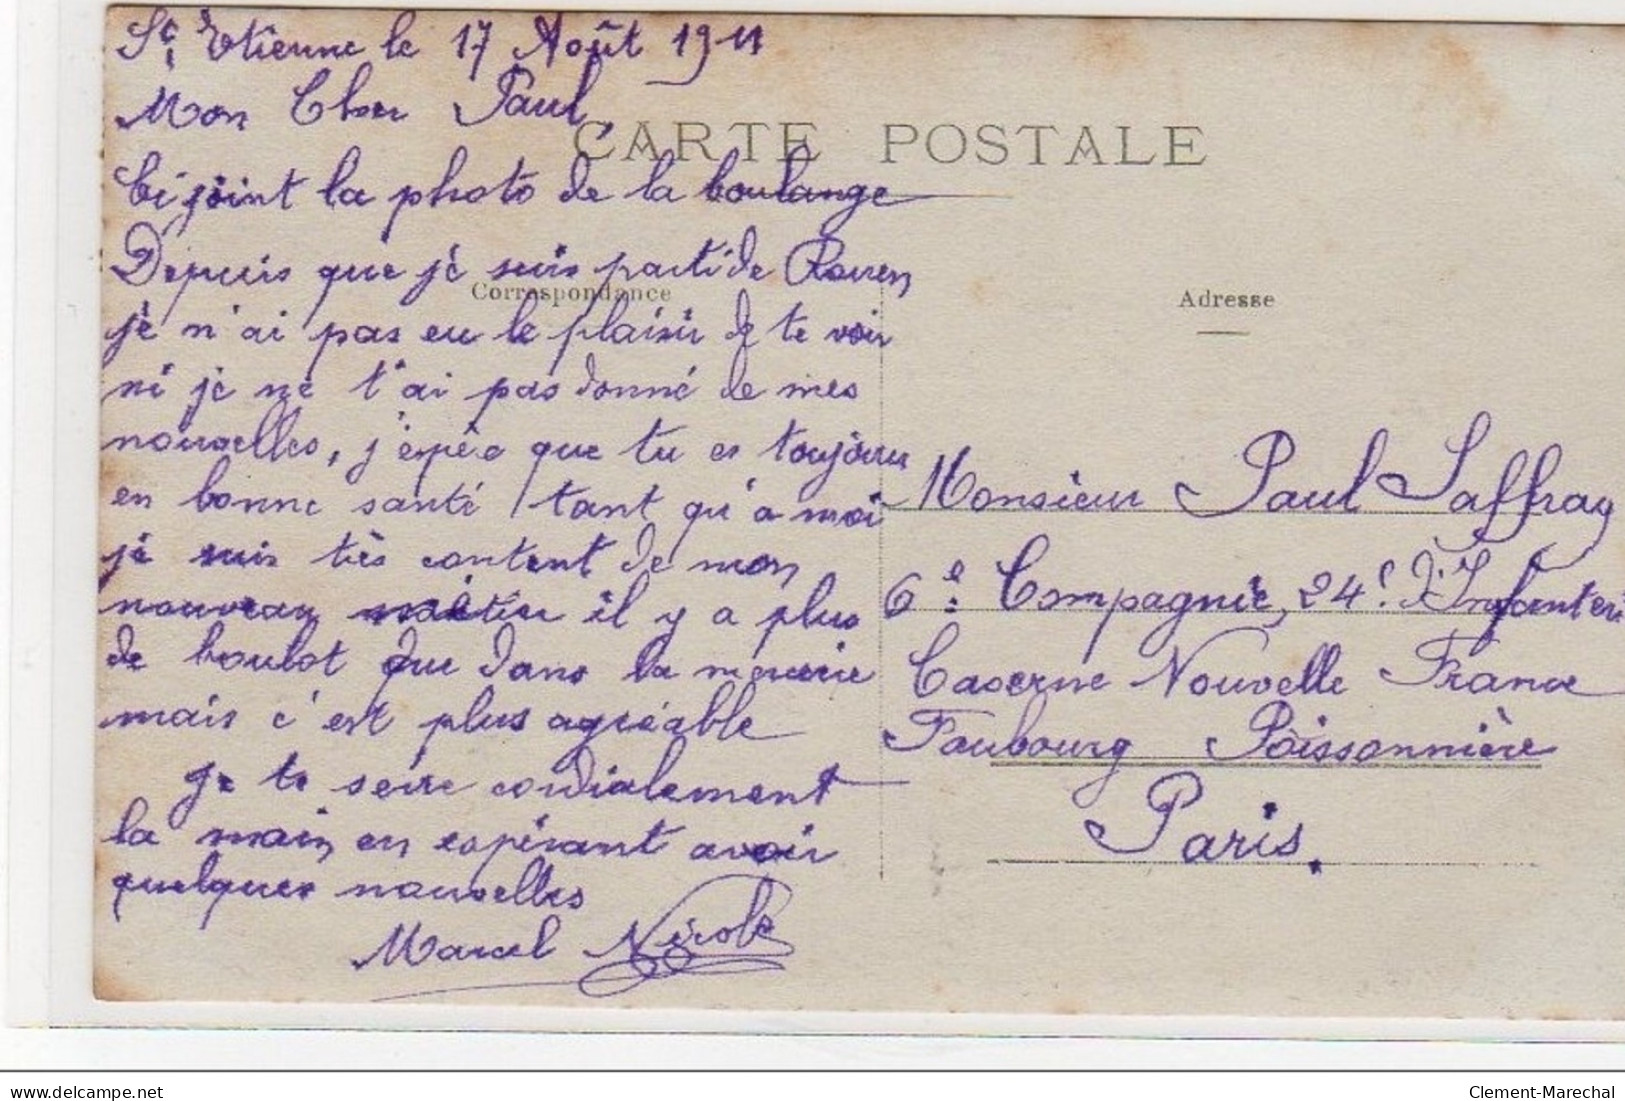 St. Etienne le 17 Août 1911
Mon Cher Paul,
CARTE POSTALE
Ci joint la photo de la boulange
Depuis que je suis parti de Rouen
Correspondance
je n'ai pas eu le plaisir de te voir
ni je ne t'ai pas donné de mes
nouvelles, j'espère que tu es toujours
en bonne santé, tant qu'a moi
je suis très content de mon
nouveau métier il y a plus
de boulot que dans la mercerie
mais c'est plus agréable
Je te serre cordialement
la main en espérant avoir
quelques nouvelles
Marcel
Adresse
Monsieur Paul Saffray
6e Compagnie, 24e d'Infanterie
Caserne Nouvelle France
Faubourg Poissonnière
Paris.
www.delcampe.net
Clement-Marechal